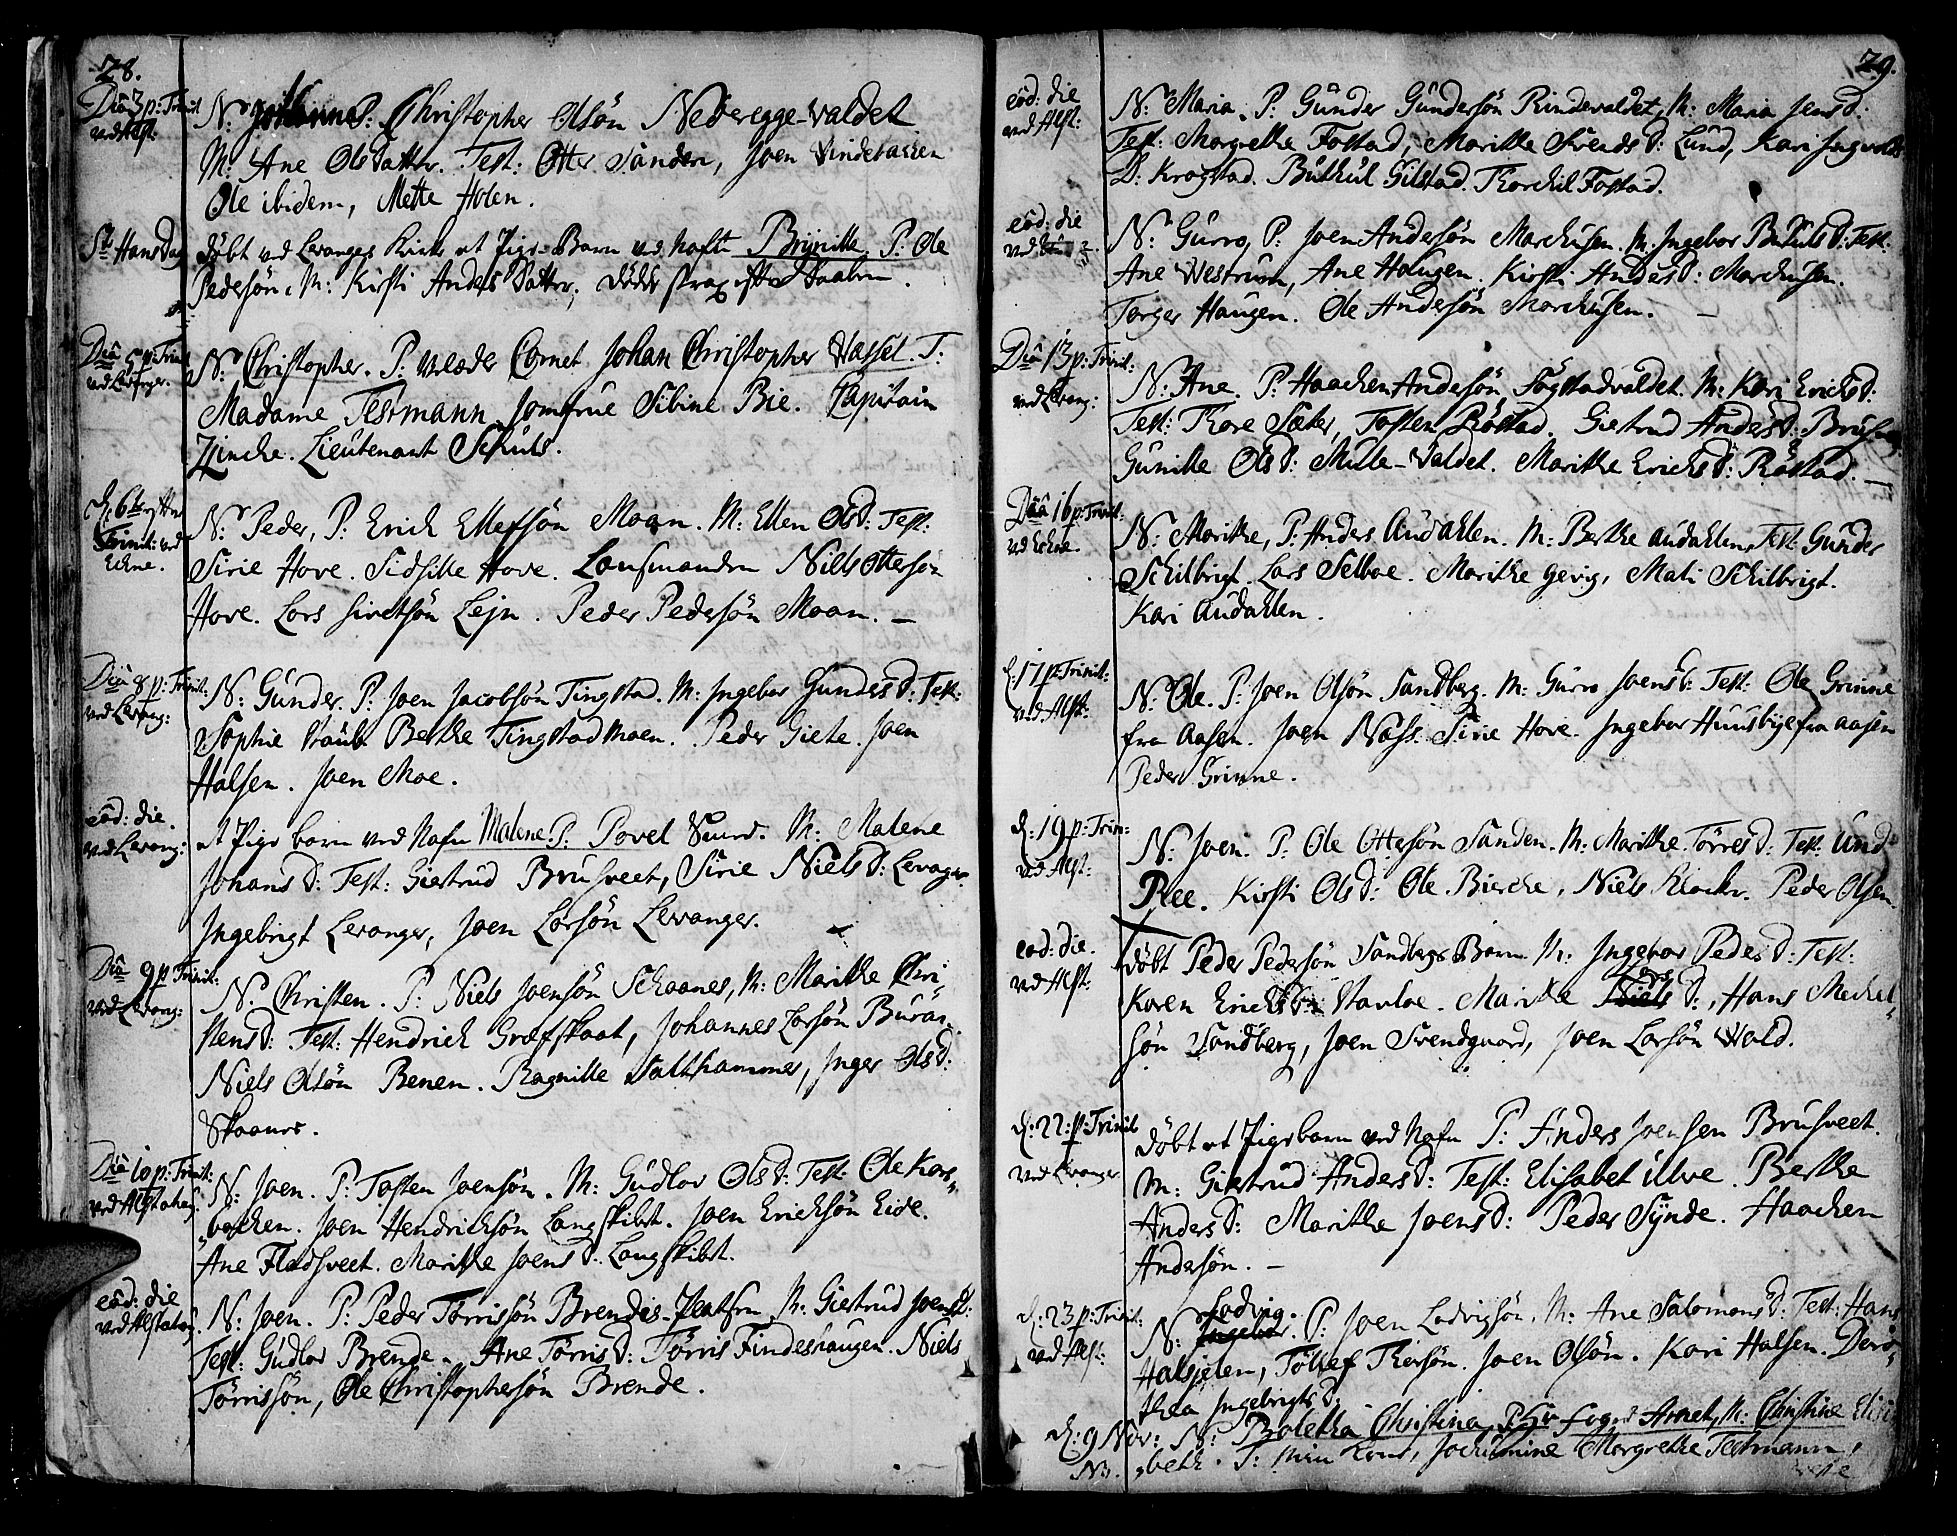 28.
Dia 3 p: Trinit
ved Alst:
N: Johanna P: Christopher Olsön Nederegge-valdet
M: Ane Olsdatter. Test: Otter Sanden, Joen Vindebakken
Ole ibidem, Mette Holen.
St Hans Dag
döbt ved Levangers Kirke et Pige-Barn ved Nafn Brynille P: Ole
Pedersön, M: Kirsti Anders Datter, döde strax efter Daaben.
Dia 5 p: Trinit
ved Levanger.
N: Christopher. P: Cornet Johan Christopher Vassel. T:
Madame Testmann Jomfrue Sibine Bie. Capitain
Zincke. Lieutenant Schults.
Trinit: ved
Echne.
N: Peder, P: Erich Ellefsön Moan. M: Ellen Olsd: Test:
Sirie Hove. Sidsille Hove. Niels Ottesön
Hove. Lars Sivertsön Lejn. Peder Pedersön Moan.
Dia 8 p: Trinit:
ved Levang:
N: Gunder. P: Joen Jacobsön Tingstad. M: Ingebor Gundersd: Test:
Sophie Berthe Tingstad Moen. Peder Giete. Joen
Halsen. Joen Moe.
eod: die.
ved Levang:
et Pige barn ved Nafn Malene. P: Povel Suurd. M: Malene
Johansd: Test: Giertrud Brusveet, Sirie Nielsd: Levanger.
Ingebrigt Levanger, Joen Larsön Levanger.
Dia 9 p Trinit:
ved Levang:
N: Christen. P: Niels Joensön Schaanes, M: Marithe Chri-
stensd: Test: Hendrich Græfskaat, Johannes Larsön Buraas
Niels Olsön Renen. Ragnille Salthammer, Inger Olsd:
Skaanes.
Dia 10 p: Trinit:
ved Alstahoug.
N: Joen. P: Tosten Joensön. M: Gudlov Olsd: Test: Ole Kors-
bachen. Joen Hendrichsön Langskibt. Joen Erichsön Eide.
Ane Fladsveet. Marithe Joensd: Langskibt.
eod: die
ved Alstahoug.
N: Joen. P: Peder Törrissön Brendes-Pladsen, M: Giertrud Joensd:
Test: Gudlov Brende. Ane Törrisd: Törris Findeshaugen. Niels
Törrissön, Ole Christophersön Brende.
29.
eod: die
ved Alst:
N: Maria. P: Gunder Gundersön Rindevaldet, M: Maria Jensd:
Test: Margrethe Fostad, Marithe Svendsd: Lund, Kari Ingvolds
D: Kragstad. Buthul Gilstad. Thorchil Fostad.
eod: die
ved
N: Gurro, P: Joen Andersön Marchusen. M: Ingebor Buthulsd: Test:
Ane Westrum, Ane Haugen. Kirsti Andersd: Marchusen.
Torger Haugen. Ole Andersön Marchusen.
Dia 13 p: Trinit:
ved Levang:
N: Ane. P: Haachen Andersön Togstadvaldet. M: Kari Erichsd:
Test: Thore Sæter, Tosten Röstad. Giertrud Andersd: Brusvee
Gunille Olsd: Mulle-Valdet. Marithe Erichsd: Röstad.
Dia 16 p: Trinit:
ved Echne.
N: Marithe, P: Anders Audahlen. M: Berthe Audahlen, Test: Gunder
Schilbrigt. Lars Selboe. Marithe Gevig, Mali Schilbrigt.
Kari Audahlen.
d: 17 p: Trinit:
ved Alst:
N: Ole. P: Joen Olsön Sandberg. M: Gurro Joensd: Test: Ole Grinne
fra Aasen. Joen Næss. Sirie Hove. Ingebor Huusbye fra Aasen
Peder Grinne.
d: 19 p: Trin:
ved Alst:
N: Joen. P: Ole Ottesön Sanden. M: Marithe Törresd: Test: Und
Ree. Kirsti Olsd: Ole Bierche, Niels Klocker. Peder Olsen.
eod: die.
ved Alst:
döbt Peder Pedersön Sandbergs Barn M: Ingebor Pedersd: Test:
Karen Erichsd: Stavloe. Marithe Nielsd:, Hans Mechel-
sön Sandberg, Joen Svendgaard, Joen Larsön Wald.
d: 22: p: Trinit
ved Levanger
döbt et Pigebarn ved Nafn P: Anders Joensen Brusveet.
M: Giertrud Andersd: Test: Elisabet Ulve. Berthe
Andersd: Marithe Joensd: Peder Synde. Haachen
Andersön.
d: 23 p: Trinit:
ved Alst:
Lodvig.
N: Ingebor. P: Joen Lodvigsön. M: Ane Salomonsd: Test: Hans
Halsjelen, Töllef Thorsön. Joen Olsön. Kari Halsen. Doro-
thea Ingebrigtsd:
d: 9 Nov:
NB.
N: Bolethe Christina P: Hr Foged Arnet, M: Christine Elisa-
beth. T: min Kone, Jochumine Margrethe Testmann,